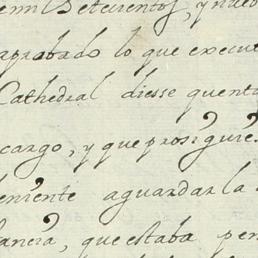 emil Setecientos, y nuev
aprobado lo que execut
Cathedral diesse quent
cargo, y que prosiguie
eniente aguardar la
anera, que estaba pen